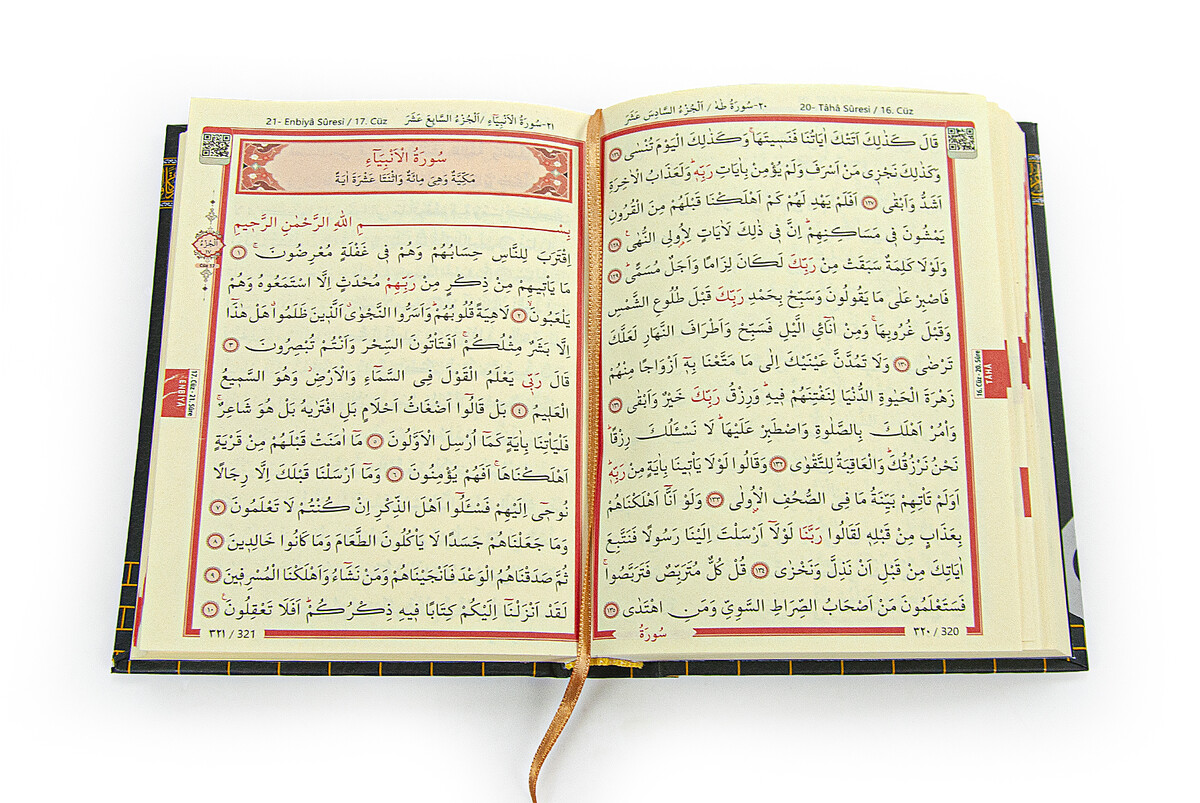 ٢٠-سُورَةُ طٰهٰ / اَلْجُزْءُ السَّادِسَ عَشَرَ
20- Tâhâ Sûresi / 16. Cüz
قَالَ كَذٰلِكَ اَتَتْكَ اٰيَاتُنَا فَنَسِيتَهَاۚ وَكَذٰلِكَ الْيَوْمَ تُنْسٰى ﴿١٢٦﴾
وَكَذٰلِكَ نَجْزِى مَنْ اَسْرَفَ وَلَمْ يُؤْمِنْ بِاٰيَاتِ رَبِّهٖۜ وَلَعَذَابُ الْاٰخِرَةِ
اَشَدُّ وَاَبْقٰى ﴿١٢٧﴾ اَفَلَمْ يَهْدِ لَهُمْ كَمْ اَهْلَكْنَا قَبْلَهُمْ مِنَ الْقُرُونِ
يَمْشُونَ فٖى مَسَاكِنِهِمْۜ اِنَّ فٖى ذٰلِكَ لَاٰيَاتٍ لِاُولِى النُّهٰىۚ ﴿١٢٨﴾
وَلَوْلَا كَلِمَةٌ سَبَقَتْ مِنْ رَبِّكَ لَكَانَ لِزَامًا وَاَجَلٌ مُسَمًّىۜ ﴿١٢٩﴾
فَاصْبِرْ عَلٰى مَا يَقُولُونَ وَسَبِّحْ بِحَمْدِ رَبِّكَ قَبْلَ طُلُوعِ الشَّمْسِ
وَقَبْلَ غُرُوبِهَاۚ وَمِنْ اٰنَٓائِ الَّيْلِ فَسَبِّحْ وَاَطْرَافَ النَّهَارِ لَعَلَّكَ
تَرْضٰى ﴿١٣٠﴾ وَلَا تَمُدَّنَّ عَيْنَيْكَ اِلٰى مَا مَتَّعْنَا بِهٖٓ اَزْوَاجًا مِنْهُمْ
زَهْرَةَ الْحَيٰوةِ الدُّنْيَا لِنَفْتِنَهُمْ فٖيهِۜ وَرِزْقُ رَبِّكَ خَيْرٌ وَاَبْقٰى ﴿١٣١﴾
وَأْمُرْ اَهْلَكَ بِالصَّلٰوةِ وَاصْطَبِرْ عَلَيْهَاۜ لَا نَسْـَٔلُكَ رِزْقًاۜ
نَحْنُ نَرْزُقُكَۜ وَالْعَاقِبَةُ لِلتَّقْوٰى ﴿١٣٢﴾ وَقَالُوا لَوْلَا يَأْتٖينَا بِاٰيَةٍ مِنْ رَبِّهٖۜ
اَوَلَمْ تَأْتِهِمْ بَيِّنَةُ مَا فِى الصُّحُفِ الْاُولٰى ﴿١٣٣﴾ وَلَوْ اَنَّٓا اَهْلَكْنَاهُمْ
بِعَذَابٍ مِنْ قَبْلِهٖ لَقَالُوا رَبَّنَا لَوْلَٓا اَرْسَلْتَ اِلَيْنَا رَسُولًا فَنَتَّبِعَ
اٰيَاتِكَ مِنْ قَبْلِ اَنْ نَذِلَّ وَنَخْزٰى ﴿١٣٤﴾ قُلْ كُلٌّ مُتَرَبِّصٌ فَتَرَبَّصُواۚ
فَسَتَعْلَمُونَ مَنْ اَصْحَابُ الصِّرَاطِ السَّوِىِّ وَمَنِ اهْتَدٰى ﴿١٣٥﴾
سُورَةُ
٣٢٠ / 320
16. Cüz - 20. Sûre
TÂHÂ
٢١-سُورَةُ الْاَنْبِيَٓاءِ / اَلْجُزْءُ السَّابِعَ عَشَرَ
21- Enbiyâ Sûresi / 17. Cüz
سُورَةُ الْاَنْبِيَٓاءِ
مَكِّيَّةٌ وَهِىَ مِائَةٌ وَاثْنَتَا عَشْرَةَ اٰيَةً
بِسْمِ اللّٰهِ الرَّحْمٰنِ الرَّحٖيمِ
اِقْتَرَبَ لِلنَّاسِ حِسَابُهُمْ وَهُمْ فٖى غَفْلَةٍ مُعْرِضُونَۚ ﴿١﴾
مَا يَأْتٖيهِمْ مِنْ ذِكْرٍ مِنْ رَبِّهِمْ مُحْدَثٍ اِلَّا اسْتَمَعُوهُ وَهُمْ
يَلْعَبُونَۙ ﴿٢﴾ لَاهِيَةً قُلُوبُهُمْۜ وَاَسَرُّوا النَّجْوٰىۗ اَلَّذٖينَ ظَلَمُواۗ هَلْ هٰذَٓا
اِلَّا بَشَرٌ مِثْلُكُمْۚ اَفَتَأْتُونَ السِّحْرَ وَاَنْتُمْ تُبْصِرُونَ ﴿٣﴾
قَالَ رَبّٖى يَعْلَمُ الْقَوْلَ فِى السَّمَٓاءِ وَالْاَرْضِۘ وَهُوَ السَّمٖيعُ
الْعَلٖيمُ ﴿٤﴾ بَلْ قَالُٓوا اَضْغَاثُ اَحْلَامٍ بَلِ افْتَرٰيهُ بَلْ هُوَ شَاعِرٌۚ
فَلْيَأْتِنَا بِاٰيَةٍ كَمَٓا اُرْسِلَ الْاَوَّلُونَ ﴿٥﴾ مَٓا اٰمَنَتْ قَبْلَهُمْ مِنْ قَرْيَةٍ
اَهْلَكْنَاهَاۚ اَفَهُمْ يُؤْمِنُونَ ﴿٦﴾ وَمَٓا اَرْسَلْنَا قَبْلَكَ اِلَّا رِجَالًا
نُوحٖٓى اِلَيْهِمْ فَسْـَٔلُٓوا اَهْلَ الذِّكْرِ اِنْ كُنْتُمْ لَا تَعْلَمُونَ ﴿٧﴾
وَمَا جَعَلْنَاهُمْ جَسَدًا لَا يَأْكُلُونَ الطَّعَامَ وَمَا كَانُوا خَالِدٖينَ ﴿٨﴾
ثُمَّ صَدَقْنَاهُمُ الْوَعْدَ فَاَنْجَيْنَاهُمْ وَمَنْ نَشَٓاءُ وَاَهْلَكْنَا الْمُسْرِفٖينَ ﴿٩﴾
لَقَدْ اَنْزَلْنَٓا اِلَيْكُمْ كِتَابًا فٖيهِ ذِكْرُكُمْۜ اَفَلَا تَعْقِلُونَ۟ ﴿١٠﴾
٣٢١ / 321
اَلْجُزْءُ
١٧
Cüz 17
17. Cüz - 21. Sûre
ENBİYÂ